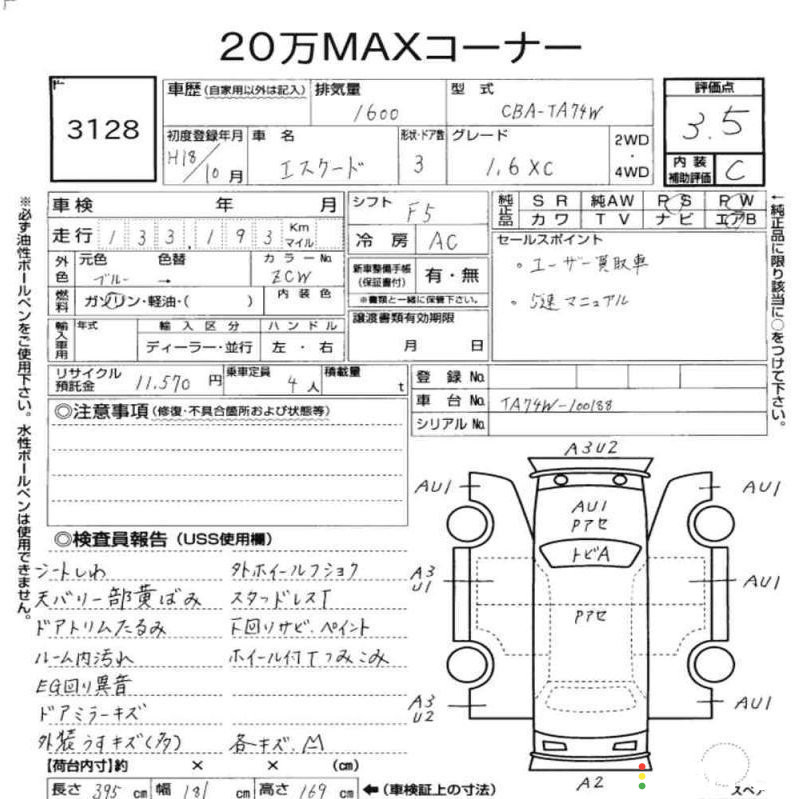 20万MAXコーナー
3128
車歴 (自家用以外は記入) 排気量 1600 型式 CBA-TA74W
評価点 3.5
初度登録年月 H18/10月 車名 エスクード 形状・ドア数 3 グレード 1.6XC 2WD・4WD
内装補助評価 C
※必ず油性ボールペンをご使用下さい。水性ボールペンは使用できません。
車検 年 月
走行 133,193 Km マイル
外色 元色 ブルー 色替 → カラーNo ZCW
燃料 ガソリン・軽油・( ) 内装色
輸入車用 年式 輸入区分 ディーラー・並行 ハンドル 左・右
リサイクル預託金 11,570円 乗車定員 4人 積載量 t
シフト F5
冷房 AC
新車整備手帳(保証書付) 有・無
※書類と一緒に保管下さい。
譲渡書類有効期限
月 日
純正品 SR 純AW PS PW
カワ TV ナビ エアB
←純正品に限り該当に○をつけて下さい。
セールスポイント
。ユーザー買取車
。5速マニュアル
登録No
車台No TA74W-100188
シリアルNo
◎注意事項(修復・不具合箇所および状態等)
◎検査員報告(USS使用欄)
シートしわ 外ホイールフショク
天バリ一部黄ばみ スタッドレスT
ドアトリムたるみ 下回りサビ、ペイント
ルーム内汚れ ホイール付Tつみこみ
EG回り異音
ドアミラーキズ
外装うすキズ(多) 各キズ、M
【荷台内寸】約 × × (cm)
長さ 395 cm 幅 181 cm 高さ 169 cm ←(車検証上の寸法)
A3U2
AU1 AU1
AU1
Pアセ
トビA
A3
U1 AU1
Pアセ
A3
U2 AU1
A2
スペア